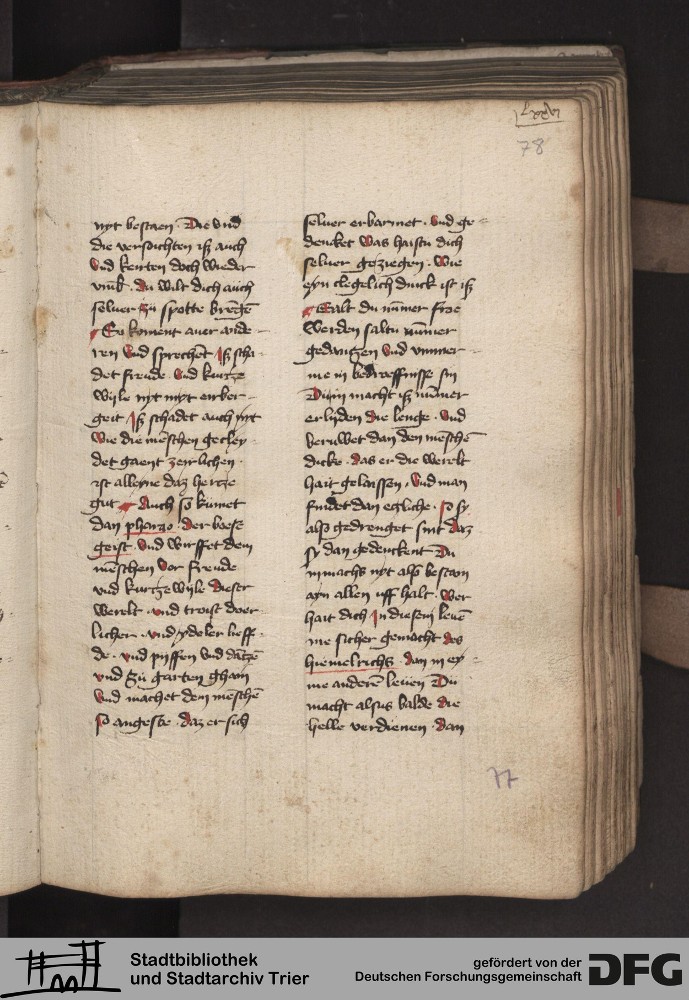 78
nyt bestaen · Die vnd
die versuchten iß auch
vnd kerten doch wieder
vmb · du wilt dich auch
seluer zu spotte brēgē
Eß koment auer ande
ren vnd sprechēt Iß scha
det freude vnd kurtze
wijle nyt myt eirber
geit Iß schadet auch nyt
wie die mēschen gecley
det gaent zeirlichen ·
ist alleyne daz hertze
gut Auch so kūmet
dan pharao · der boese
geist · vnd wirffet dem
mēschen vor freude
vnd kurtzewijle dieser
werelt · vnd troist
licher · vnd ydeler lieff
de · vnd pijffen vnd dātzē
vnd zu garten ghain
vnd machet dem mēschē
so angeste · daz er sich
seluer erbarmet · vnd ge
dencket was haistu dich
seluer geziegen · Wie
eyn clegelich dinck ist iß
Ealt du nūmer froe
werden saltu nūmer
gedantzen vnd vmmer
me in bedroeffnisse sin
Du in macht iß nūmer
erlyden die lenge · vnd
beruwet dan den mēschē
dicke · das er die werelt
hait gelaissen / vnd man
findet dan egliche · so sy
also gedrenget sint daz
sy dan gedenckent Du
in machs nyt also bestaen
ayn allen uff halt · wer
hait dich in diesem leuē
me sicher gemacht des
hiemelrichs · dan in ey
me anderē leuen Du
macht alsus balde die
helle verdienen · dan
77
Stadtbibliothek
und Stadtarchiv Trier
gefördert von der
Deutschen Forschungsgemeinschaft
DFG